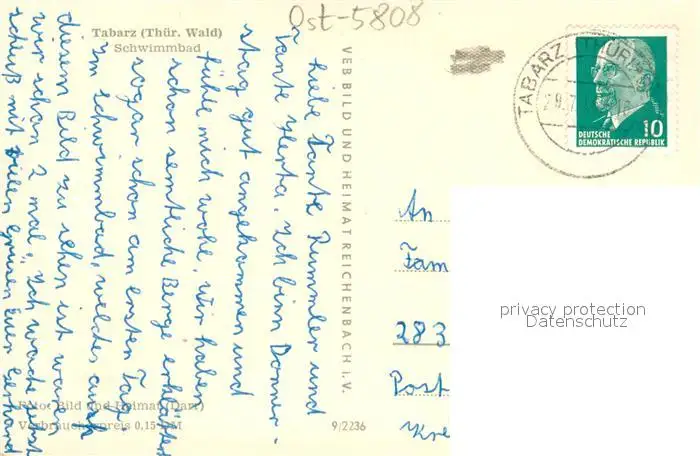 Ost-5808
Tabarz (Thür. Wald)
Schwimmbad
liebe Tante Rummler und
Tante Herta. Ich binn Donner-
stag gut angekommen und
fühle mich wohl. Wir haben
schon semtliche Berge erklättert
sogar schon am ersten Tag.
im schwimmbad, welches auch
diesem Bild zu sehen ist waren
wir schon 2 mal.
schluß mit vielen grüsen Euer Gerhard
Foto: Bild und Heimat (Darr)
Verbraucherpreis 0,15 DM
VEB BILD UND HEIMAT REICHENBACH I. V.
9/2236
TABARZ (THÜR
DEUTSCHE
DEMOKRATISCHE REPUBLIK
10
An
Fam
283
Post
Kre
privacy protection
Datenschutz